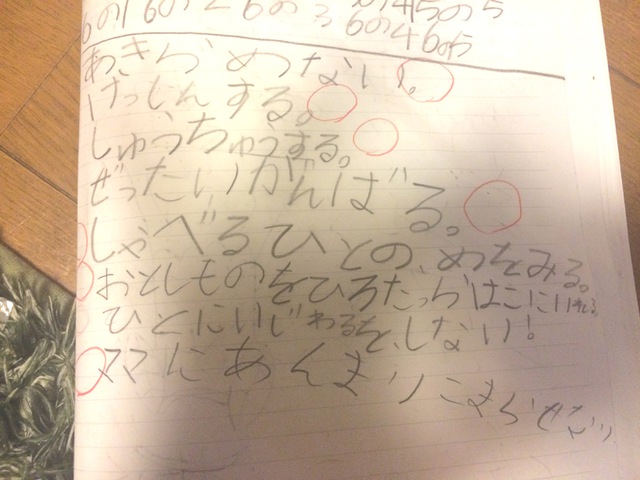 6の1 6の2 6の3
6の4 6の5
あきらめない。
げっしんする。
しゅうちゅうする。
ぜったいがんばる。
しゃべるひとの、めをみる。
おとしものをひろたっらはこにいれる。
ひとにいじわるを、しない!
ママにあんまりこまらせない